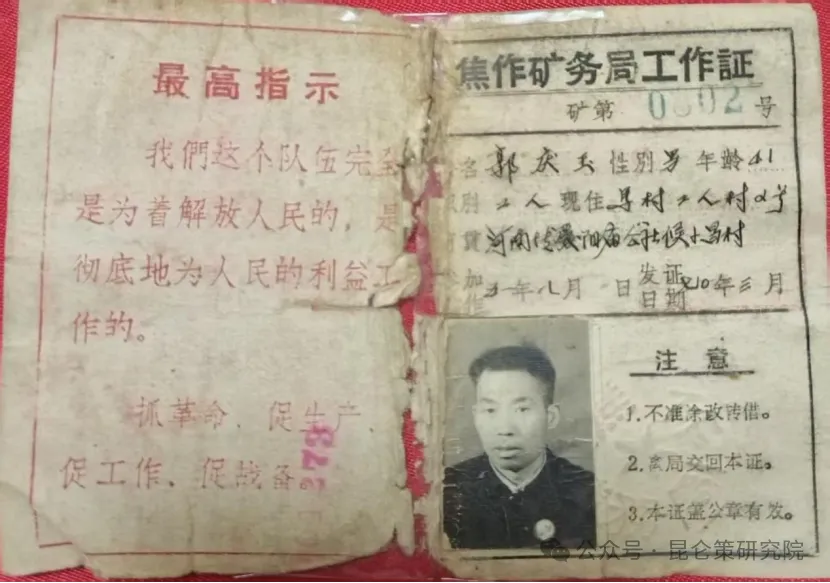 最高指示
我們这个队伍完全
是为着解放人民的，是
彻底地为人民的利益工
作的。
抓革命、促生产、
促工作、促战备。
273
焦作矿务局工作証
矿第 0802 号
名 郭庆玉 性别 男 年龄 41
别 工人 现住 马村工人村2号
河南 阳庙公社候小马村
加 年八月 日 发证
作 日期 年三月
注意
1.不准涂改转借。
2.离局交回本证。
3.本证盖公章有效。
公众号·昆仑策研究院